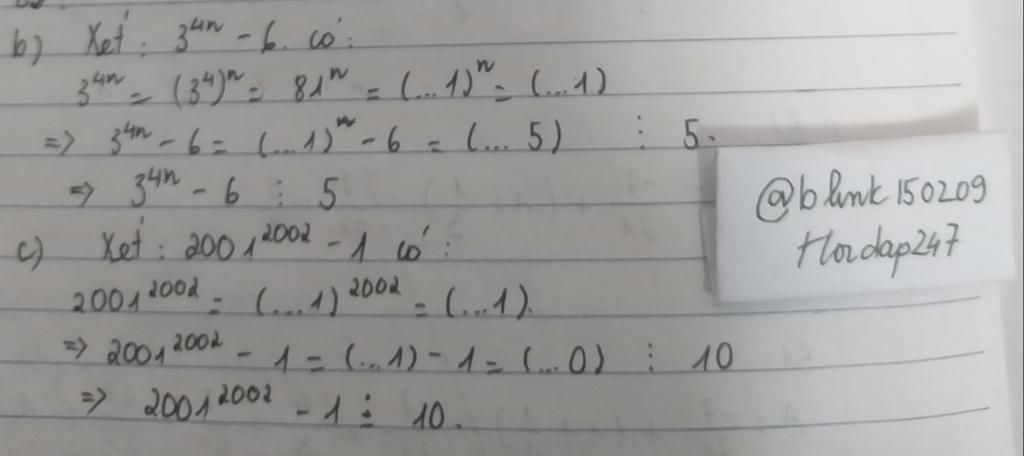 b) Xét : 3^{4n} - 6 có :
3^{4n} = (3^4)^n = 81^n = (...1)^n = (...1)
=> 3^{4n} - 6 = (...1)^n - 6 = (...5) ⋮ 5.
=> 3^{4n} - 6 ⋮ 5
c) Xét : 2001^{2002} - 1 có :
2001^{2002} = (...1)^{2002} = (...1).
=> 2001^{2002} - 1 = (...1) - 1 = (...0) ⋮ 10
=> 2001^{2002} - 1 ⋮ 10.
@blink150209